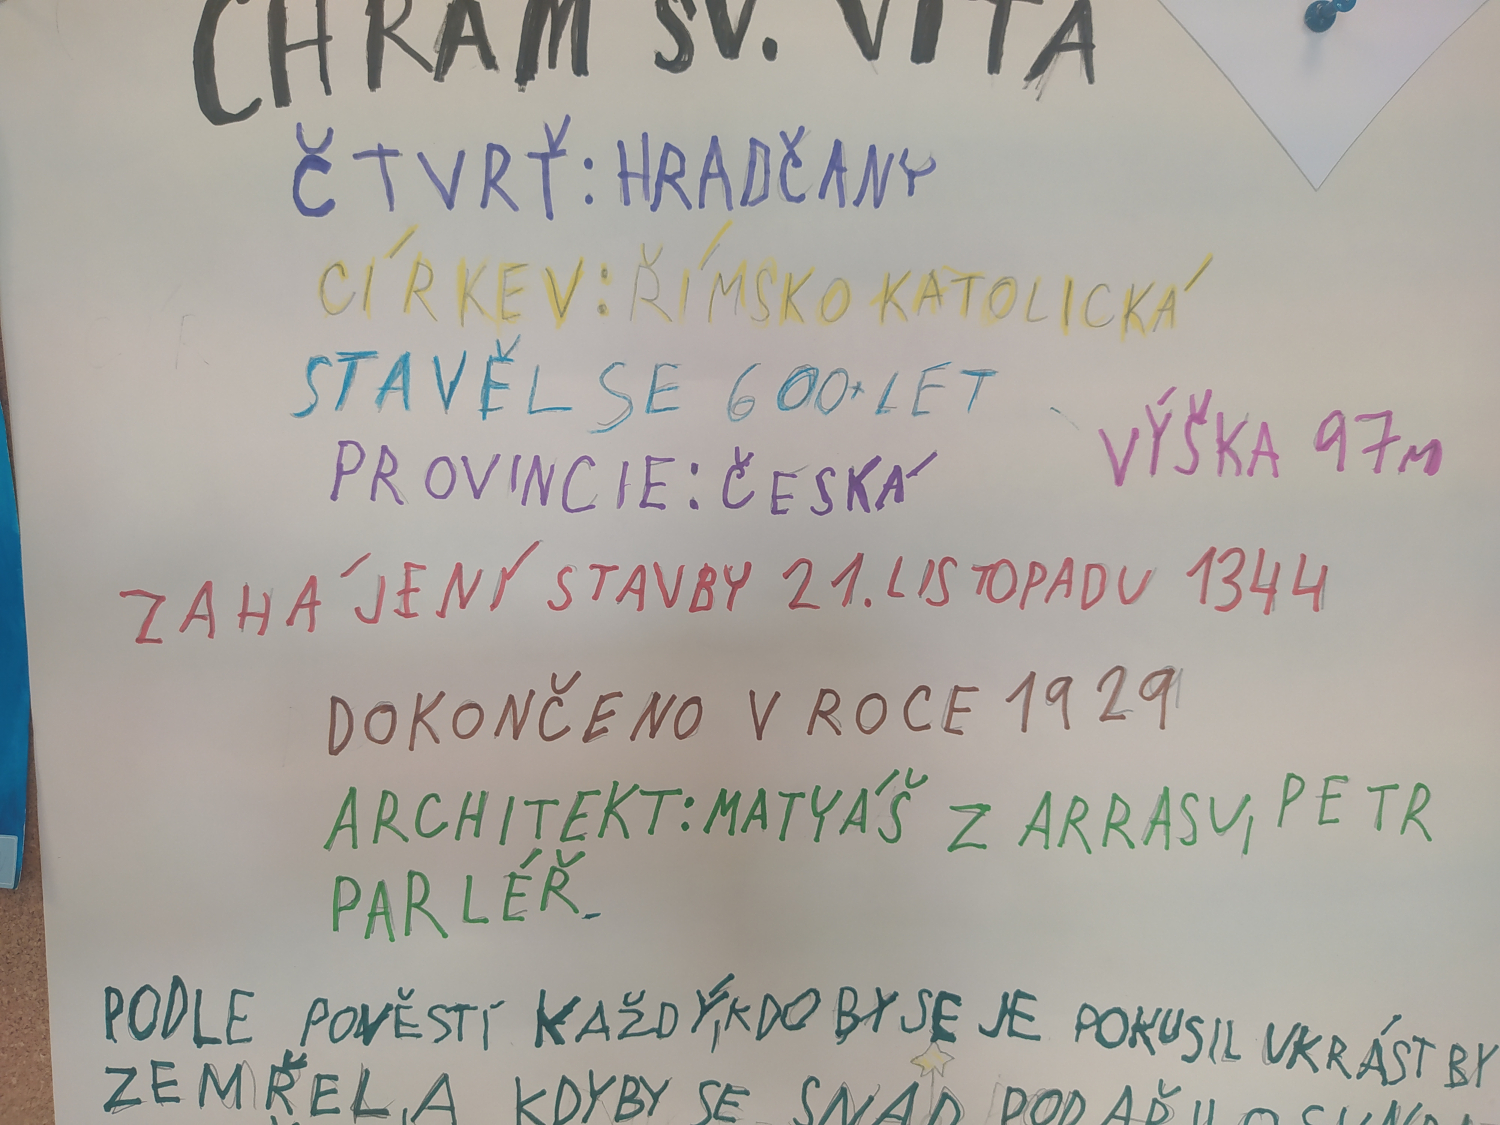 CHRÁM SV. VÍTA
ČTVRŤ: HRADČANY
CÍRKEV: ŘÍMSKO KATOLICKÁ
STAVĚL SE 600 LET
VÝŠKA 97M
PROVINCIE: ČESKÁ
ZAHÁJENÍ STAVBY 21. LISTOPADU 1344
DOKONČENO V ROCE 1929
ARCHITEKT: MATYÁŠ Z ARRASU, PETR
PARLÉŘ
PODLE POVĚSTÍ KAŽDÝ, KDO BY SE JE POKUSIL UKRÁST BY
ZEMŘEL, A KDYBY SE SNAD PODAŘILO